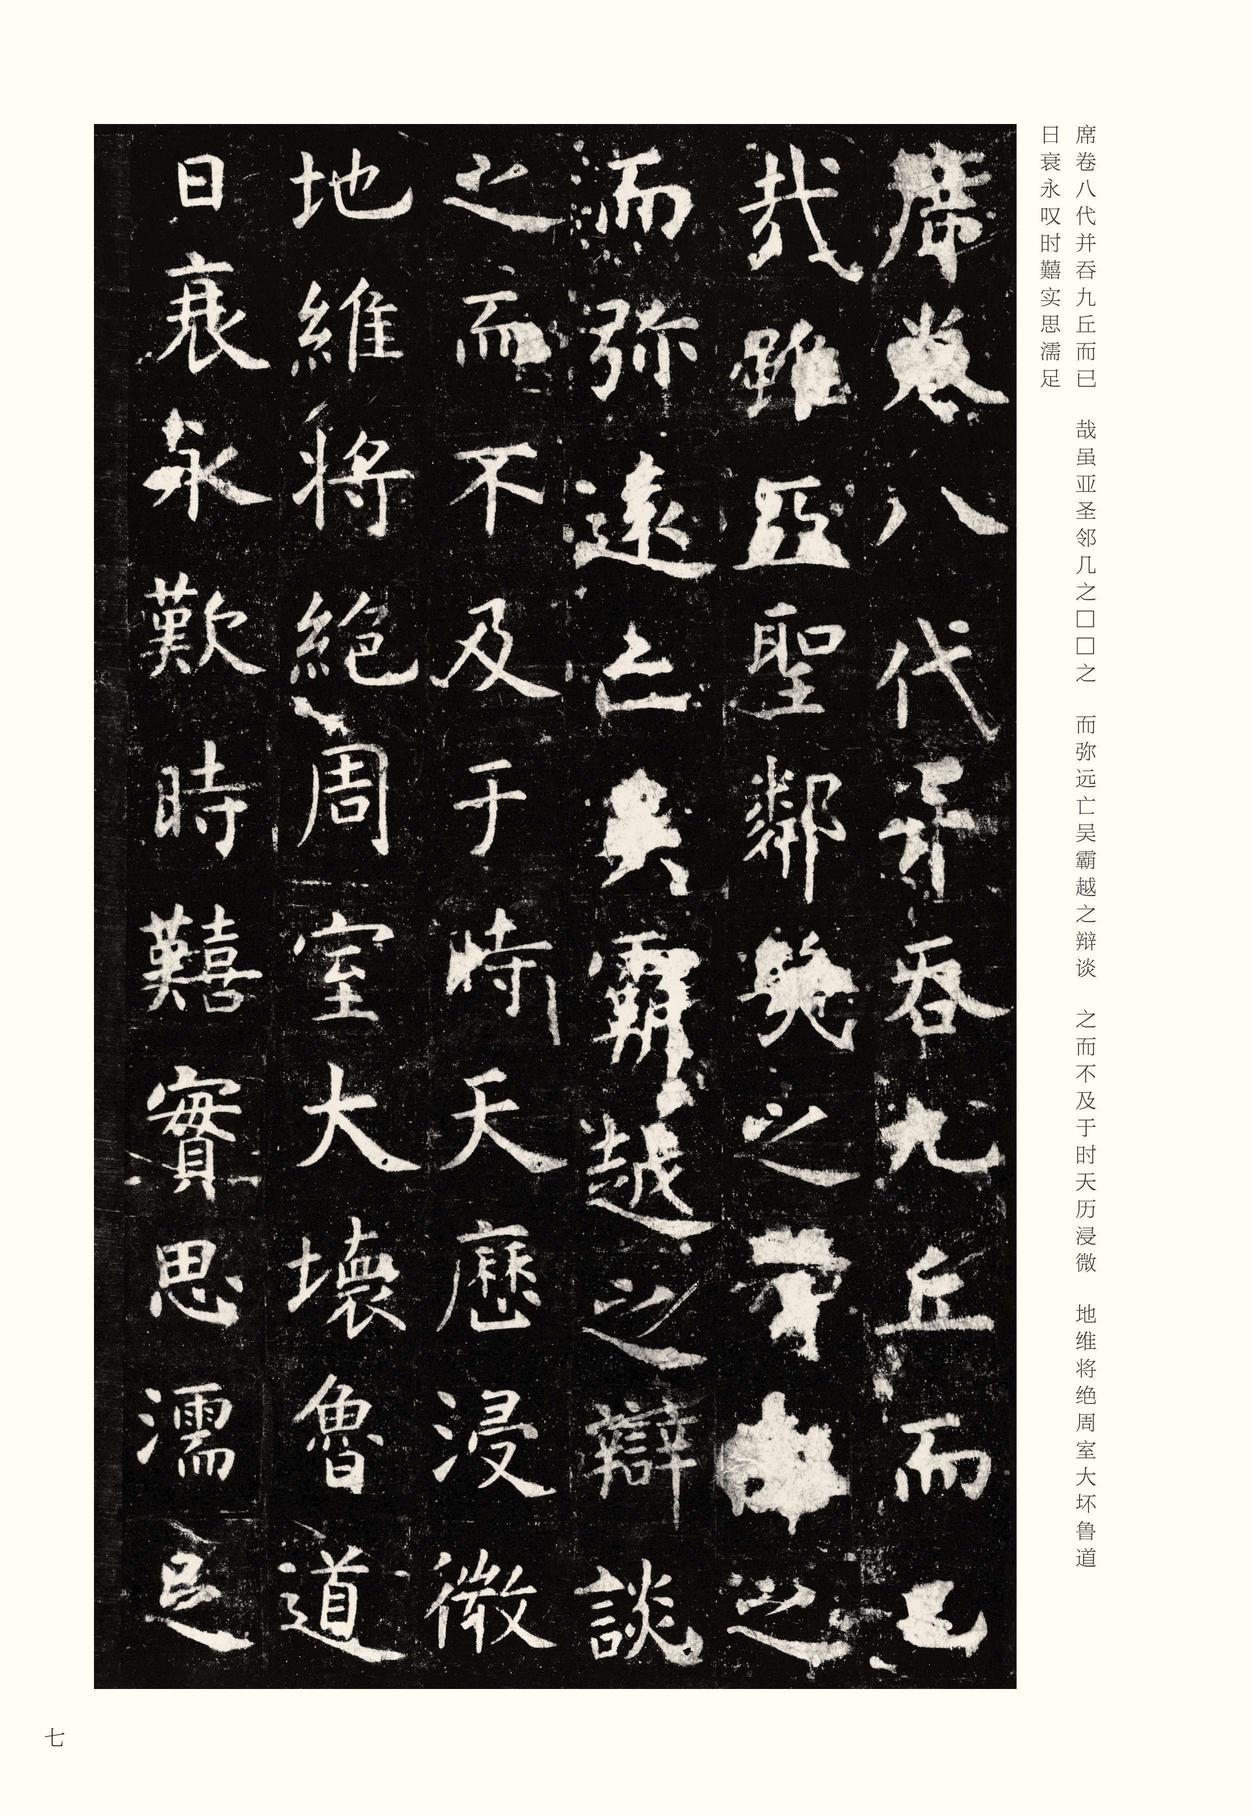 席卷八代并吞九丘而已 哉虽亚圣邻几之□□之 而弥远亡吴霸越之辩谈 之而不及于时天历浸微 地维将绝周室大坏鲁道
日衰永叹时囏实思濡足
席卷八代并吞九丘而已
哉雖亞聖鄰幾之之
而弥遠亡吳霸越之辯談
之而不及于時天曆浸微
地維將絕周室大壞魯道
日衰永歎時囏實思濡足
七